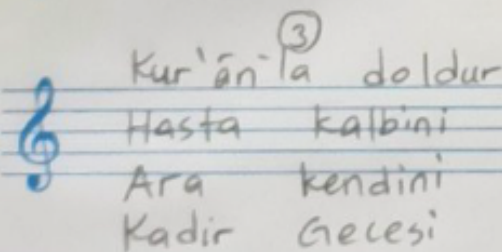 3
Kur'ān-la doldur
Hasta kalbini
Ara kendini
Kadir Gecesi